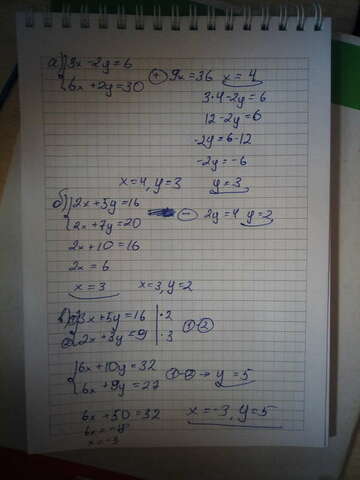 а) { 3x - 2y = 6
6x + 2y = 30 (+) 9x = 36 x = 4
3·4 - 2y = 6
12 - 2y = 6
-2y = 6 - 12
-2y = -6
x = 4, y = 3 y = 3
б) { 2x + 5y = 16
2x + 7y = 20 (-) 2y = 4 y = 2
2x + 10 = 16
2x = 6
x = 3 x = 3, y = 2
в) ① 3x + 5y = 16 | ·2
② 2x + 3y = 9 | ·3 ①-②
{ 6x + 10y = 32
6x + 9y = 27 ①-② → y = 5
6x + 50 = 32 x = -3, y = 5
6x = -18
x = -3